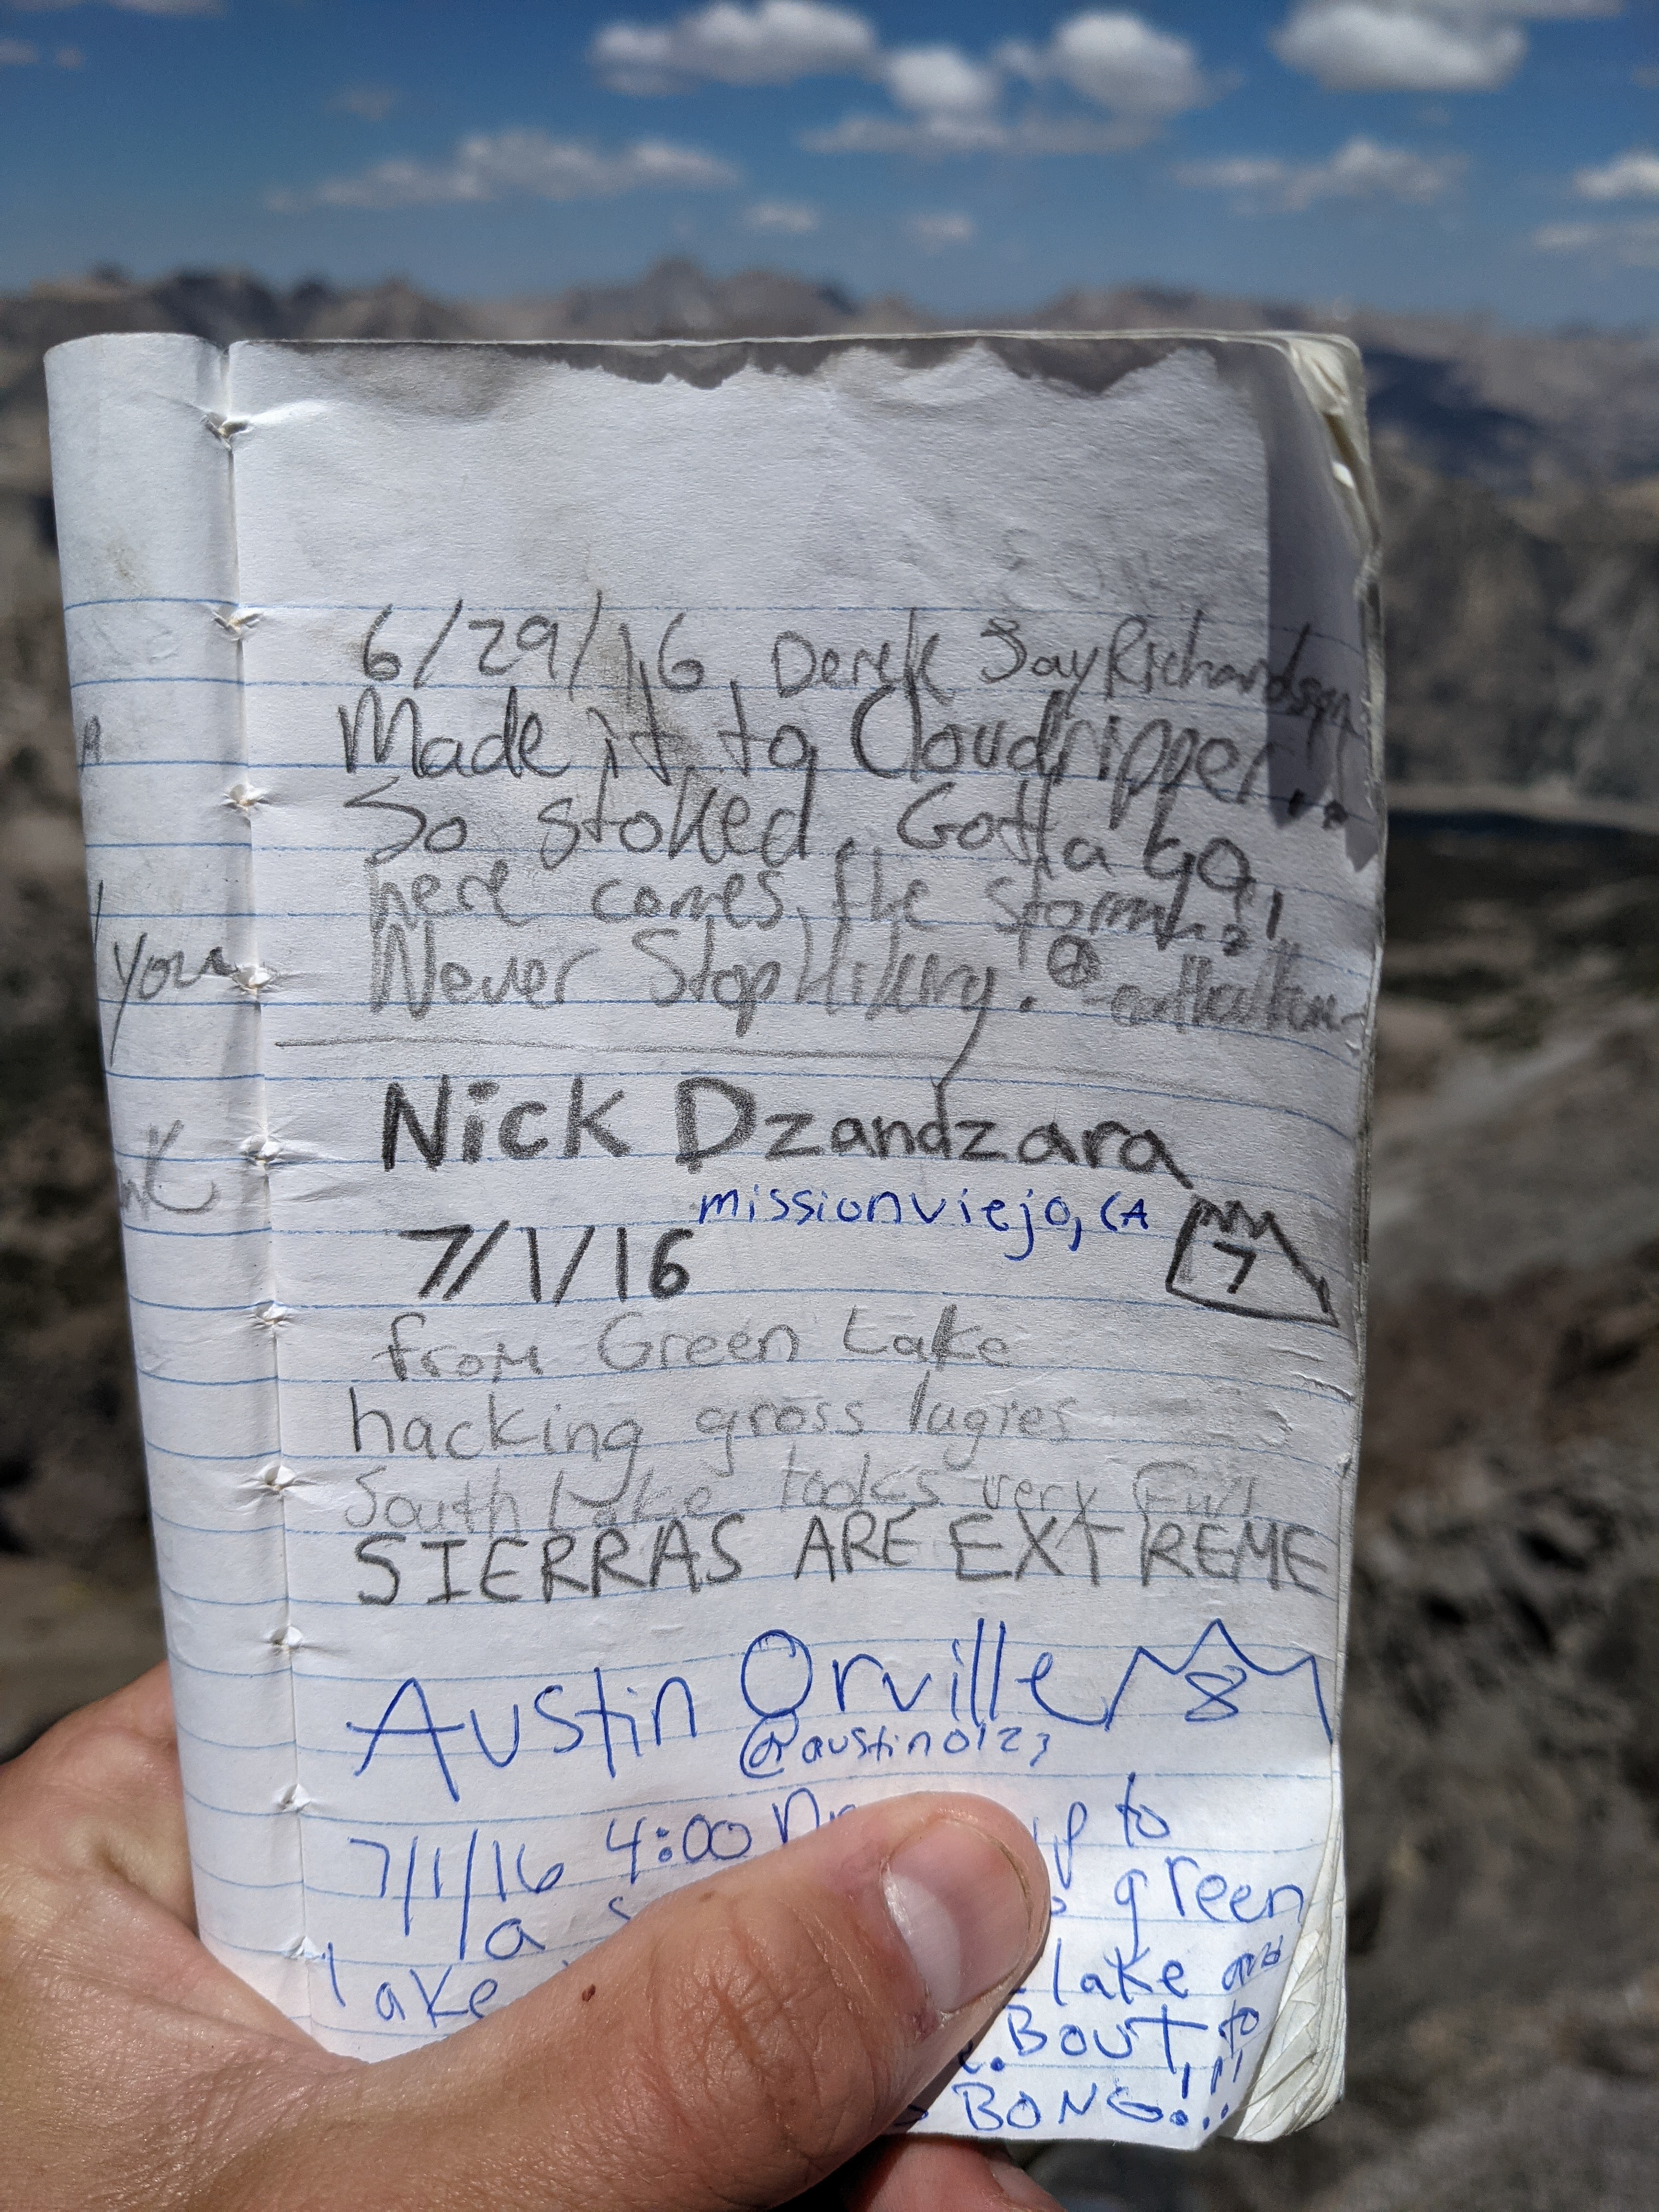 6/29/16 Derek Jay Richardson
Made it to Cloudripper..
So stoked. Gotta go,
here comes the storm!
Never Stop Hiking!
Nick Dzandzara
missionviejo, CA
7/1/16
7
from Green Lake
hacking gross lugies
South Lake looks very Full
SIERRAS ARE EXTREME
Austin Orville
8
@austino123
7/1/16 4:00 up to
a green
lake lake and
. BOUT to
BONG!!!
You